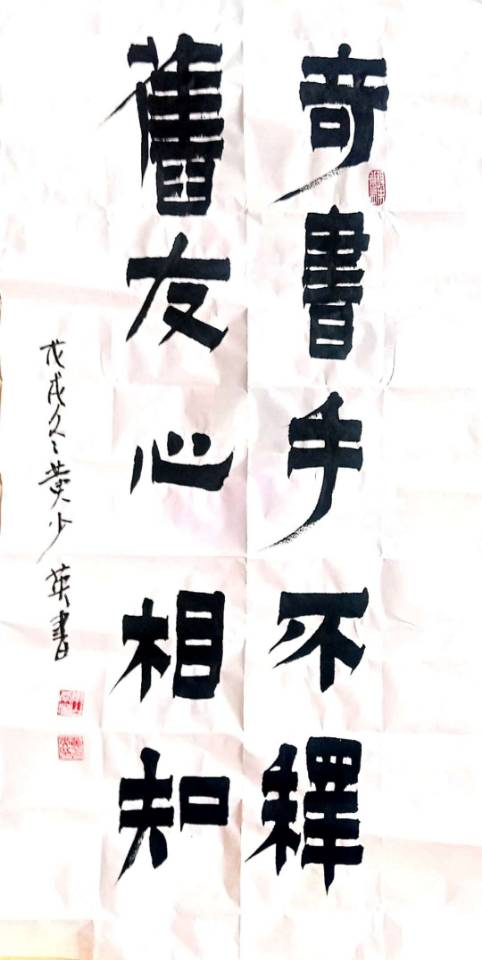 奇書手不釋
舊友心相知
戊戌冬黄少英書